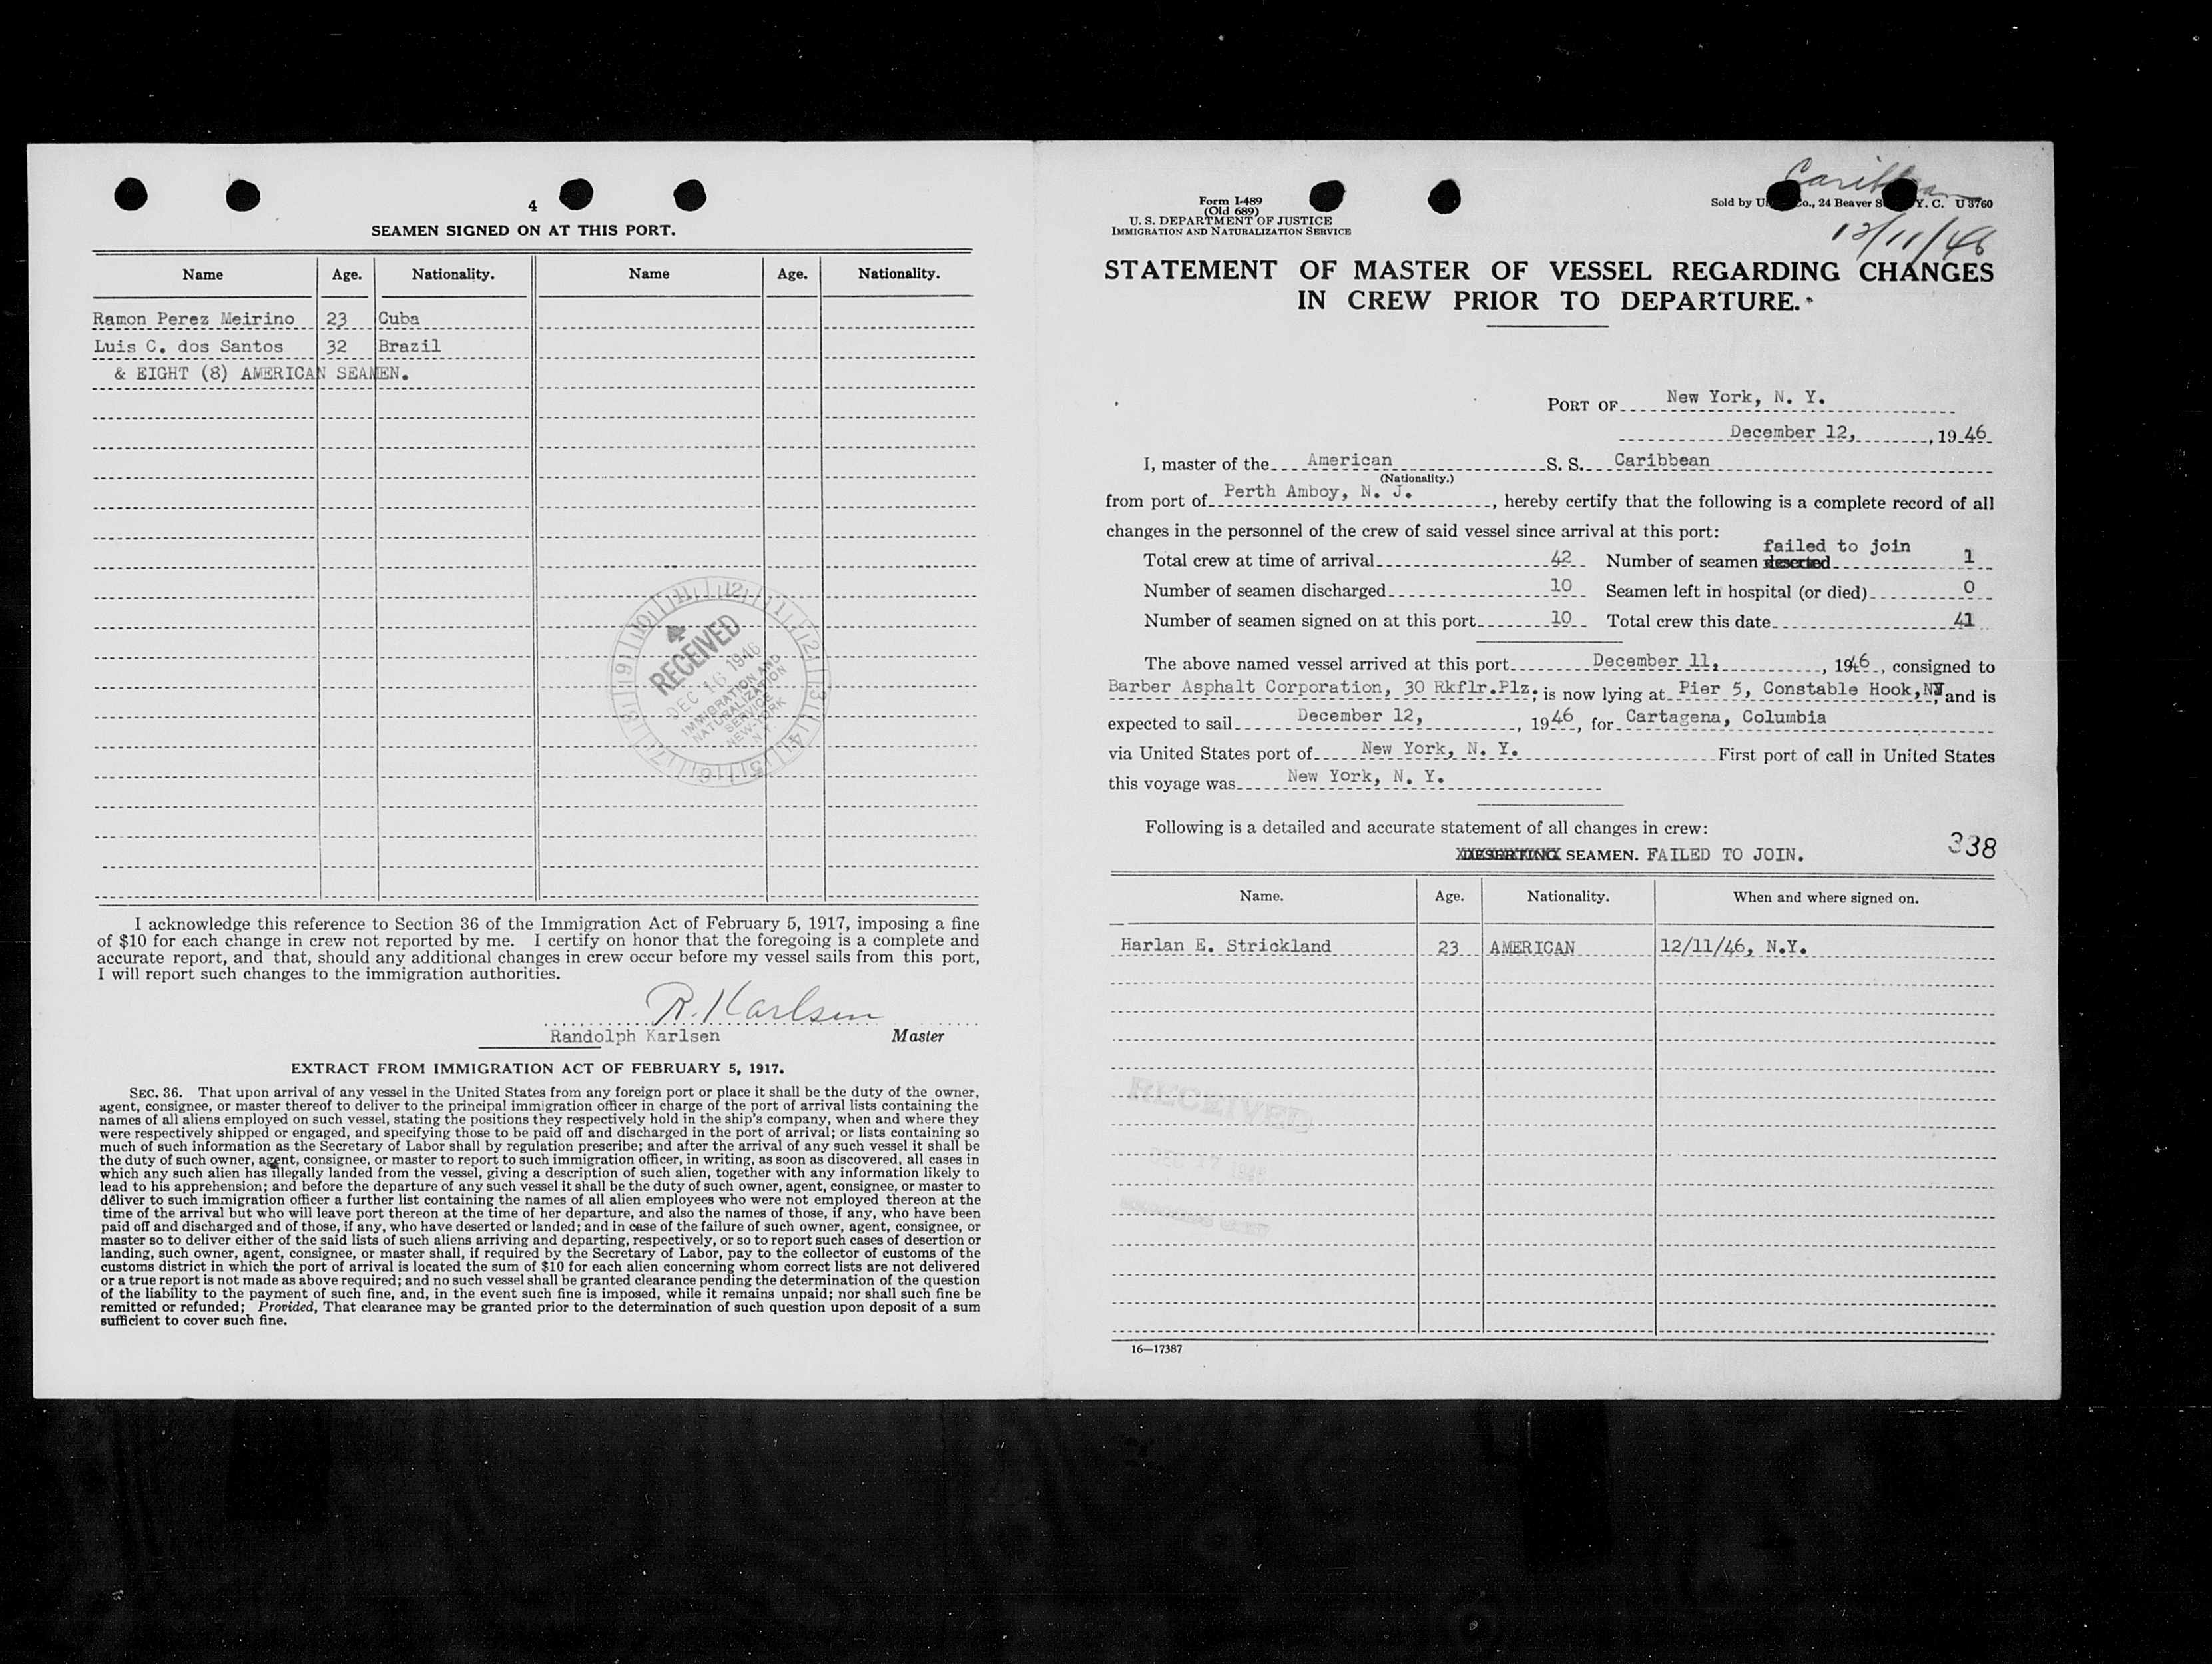 4
SEAMEN SIGNED ON AT THIS PORT.
Name Age. Nationality. Name Age. Nationality.
Ramon Perez Meirino 23 Cuba
Luis C. dos Santos 32 Brazil
& EIGHT (8) AMERICAN SEAMEN.
12 1 2 3 4 5 6 7 8 9 10 11
RECEIVED
DEC 16 1946
IMMIGRATION AND
NATURALIZATION
SERVICE
NEW-YORK
N.Y.
I acknowledge this reference to Section 36 of the Immigration Act of February 5, 1917, imposing a fine
of $10 for each change in crew not reported by me. I certify on honor that the foregoing is a complete and
accurate report, and that, should any additional changes in crew occur before my vessel sails from this port,
I will report such changes to the immigration authorities.
R. Karlsen
Randolph Karlsen Master
EXTRACT FROM IMMIGRATION ACT OF FEBRUARY 5, 1917.
SEC. 36. That upon arrival of any vessel in the United States from any foreign port or place it shall be the duty of the owner,
agent, consignee, or master thereof to deliver to the principal immigration officer in charge of the port of arrival lists containing the
names of all aliens employed on such vessel, stating the positions they respectively hold in the ship's company, when and where they
were respectively shipped or engaged, and specifying those to be paid off and discharged in the port of arrival; or lists containing so
much of such information as the Secretary of Labor shall by regulation prescribe; and after the arrival of any such vessel it shall be
the duty of such owner, agent, consignee, or master to report to such immigration officer, in writing, as soon as discovered, all cases in
which any such alien has illegally landed from the vessel, giving a description of such alien, together with any information likely to
lead to his apprehension; and before the departure of any such vessel it shall be the duty of such owner, agent, consignee, or master to
deliver to such immigration officer a further list containing the names of all alien employees who were not employed thereon at the
time of the arrival but who will leave port thereon at the time of her departure, and also the names of those, if any, who have been
paid off and discharged and of those, if any, who have deserted or landed; and in case of the failure of such owner, agent, consignee, or
master so to deliver either of the said lists of such aliens arriving and departing, respectively, or so to report such cases of desertion or
landing, such owner, agent, consignee, or master shall, if required by the Secretary of Labor, pay to the collector of customs of the
customs district in which the port of arrival is located the sum of $10 for each alien concerning whom correct lists are not delivered
or a true report is not made as above required; and no such vessel shall be granted clearance pending the determination of the question
of the liability to the payment of such fine, and, in the event such fine is imposed, while it remains unpaid; nor shall such fine be
remitted or refunded; Provided, That clearance may be granted prior to the determination of such question upon deposit of a sum
sufficient to cover such fine.
Form I-489
(Old 689)
U. S. DEPARTMENT OF JUSTICE
IMMIGRATION AND NATURALIZATION SERVICE
Caribbean
Sold by Co., 24 Beaver Y. C. U 3760
12/11/46
STATEMENT OF MASTER OF VESSEL REGARDING CHANGES
IN CREW PRIOR TO DEPARTURE.
PORT OF New York, N. Y.
December 12, , 1946
I, master of the American S. S. Caribbean
(Nationality.)
from port of Perth Amboy, N. J. , hereby certify that the following is a complete record of all
changes in the personnel of the crew of said vessel since arrival at this port:
failed to join
Total crew at time of arrival 42 Number of seamen deserted 1
Number of seamen discharged 10 Seamen left in hospital (or died) 0
Number of seamen signed on at this port 10 Total crew this date 41
The above named vessel arrived at this port December 11, , 1946, consigned to
Barber Asphalt Corporation, 30 Rkflr.Plz; is now lying at Pier 5, Constable Hook, NJ, and is
expected to sail December 12, , 1946, for Cartagena, Columbia
via United States port of New York, N. Y. First port of call in United States
this voyage was New York, N. Y.
Following is a detailed and accurate statement of all changes in crew:
338
DESERTING SEAMEN. FAILED TO JOIN.
Name. Age. Nationality. When and where signed on.
Harlan E. Strickland 23 AMERICAN 12/11/46, N.Y.
RECEIVED
DEC 17 1946
16—17387